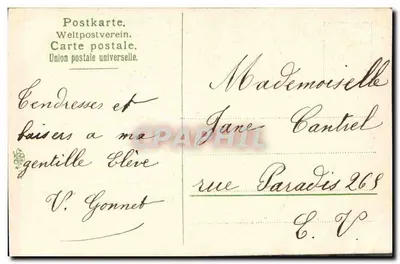 Postkarte.
Weltpostverein.
Carte postale.
Union postale universelle.
Tendresses et
baisers a ma
gentille Elève
V. Gonnet
Mademoiselle
Jane Cantrel
rue Paradis 265
E. V.
DELCAMPHIL